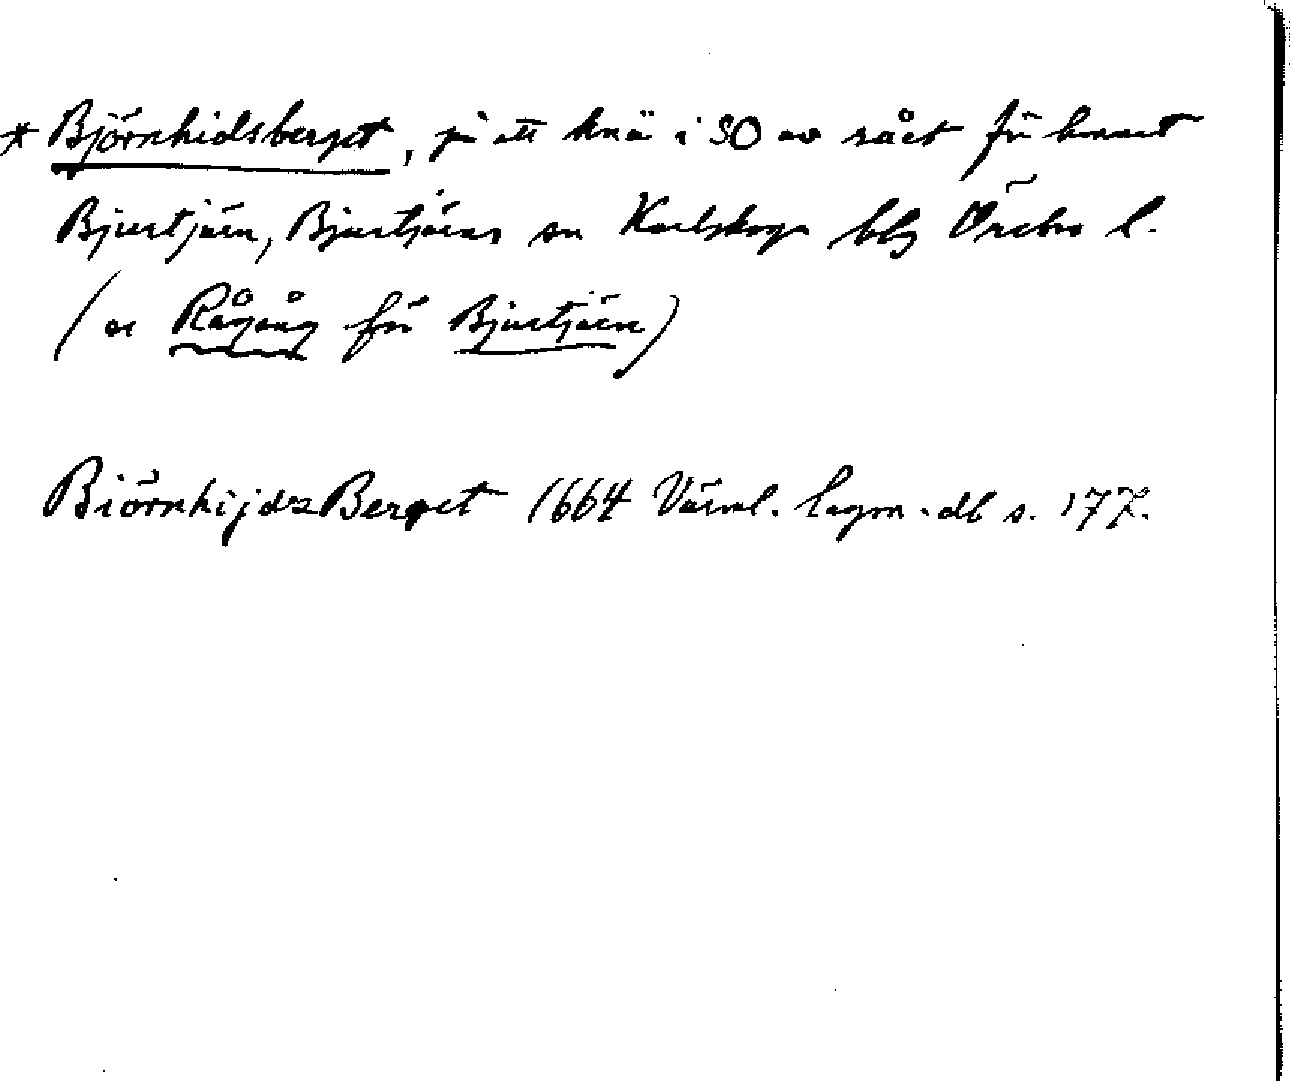 * Björnhidsberget, på ett knä i SO av rået för hemmet
Bjurtjärn, Bjurtjärns sn Karlskoga blg Örebro l.
(se Rågång för Bjurtjärn)
BiörnhijdzBerget 1664 Värml. lagm.db s. 177.